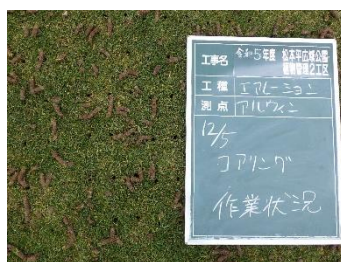 工事名 令和5年度 松本平広域公園
植物管理2工区
工種 エアレーション
測点 アルウィン
12/5
コアリング
作業状況